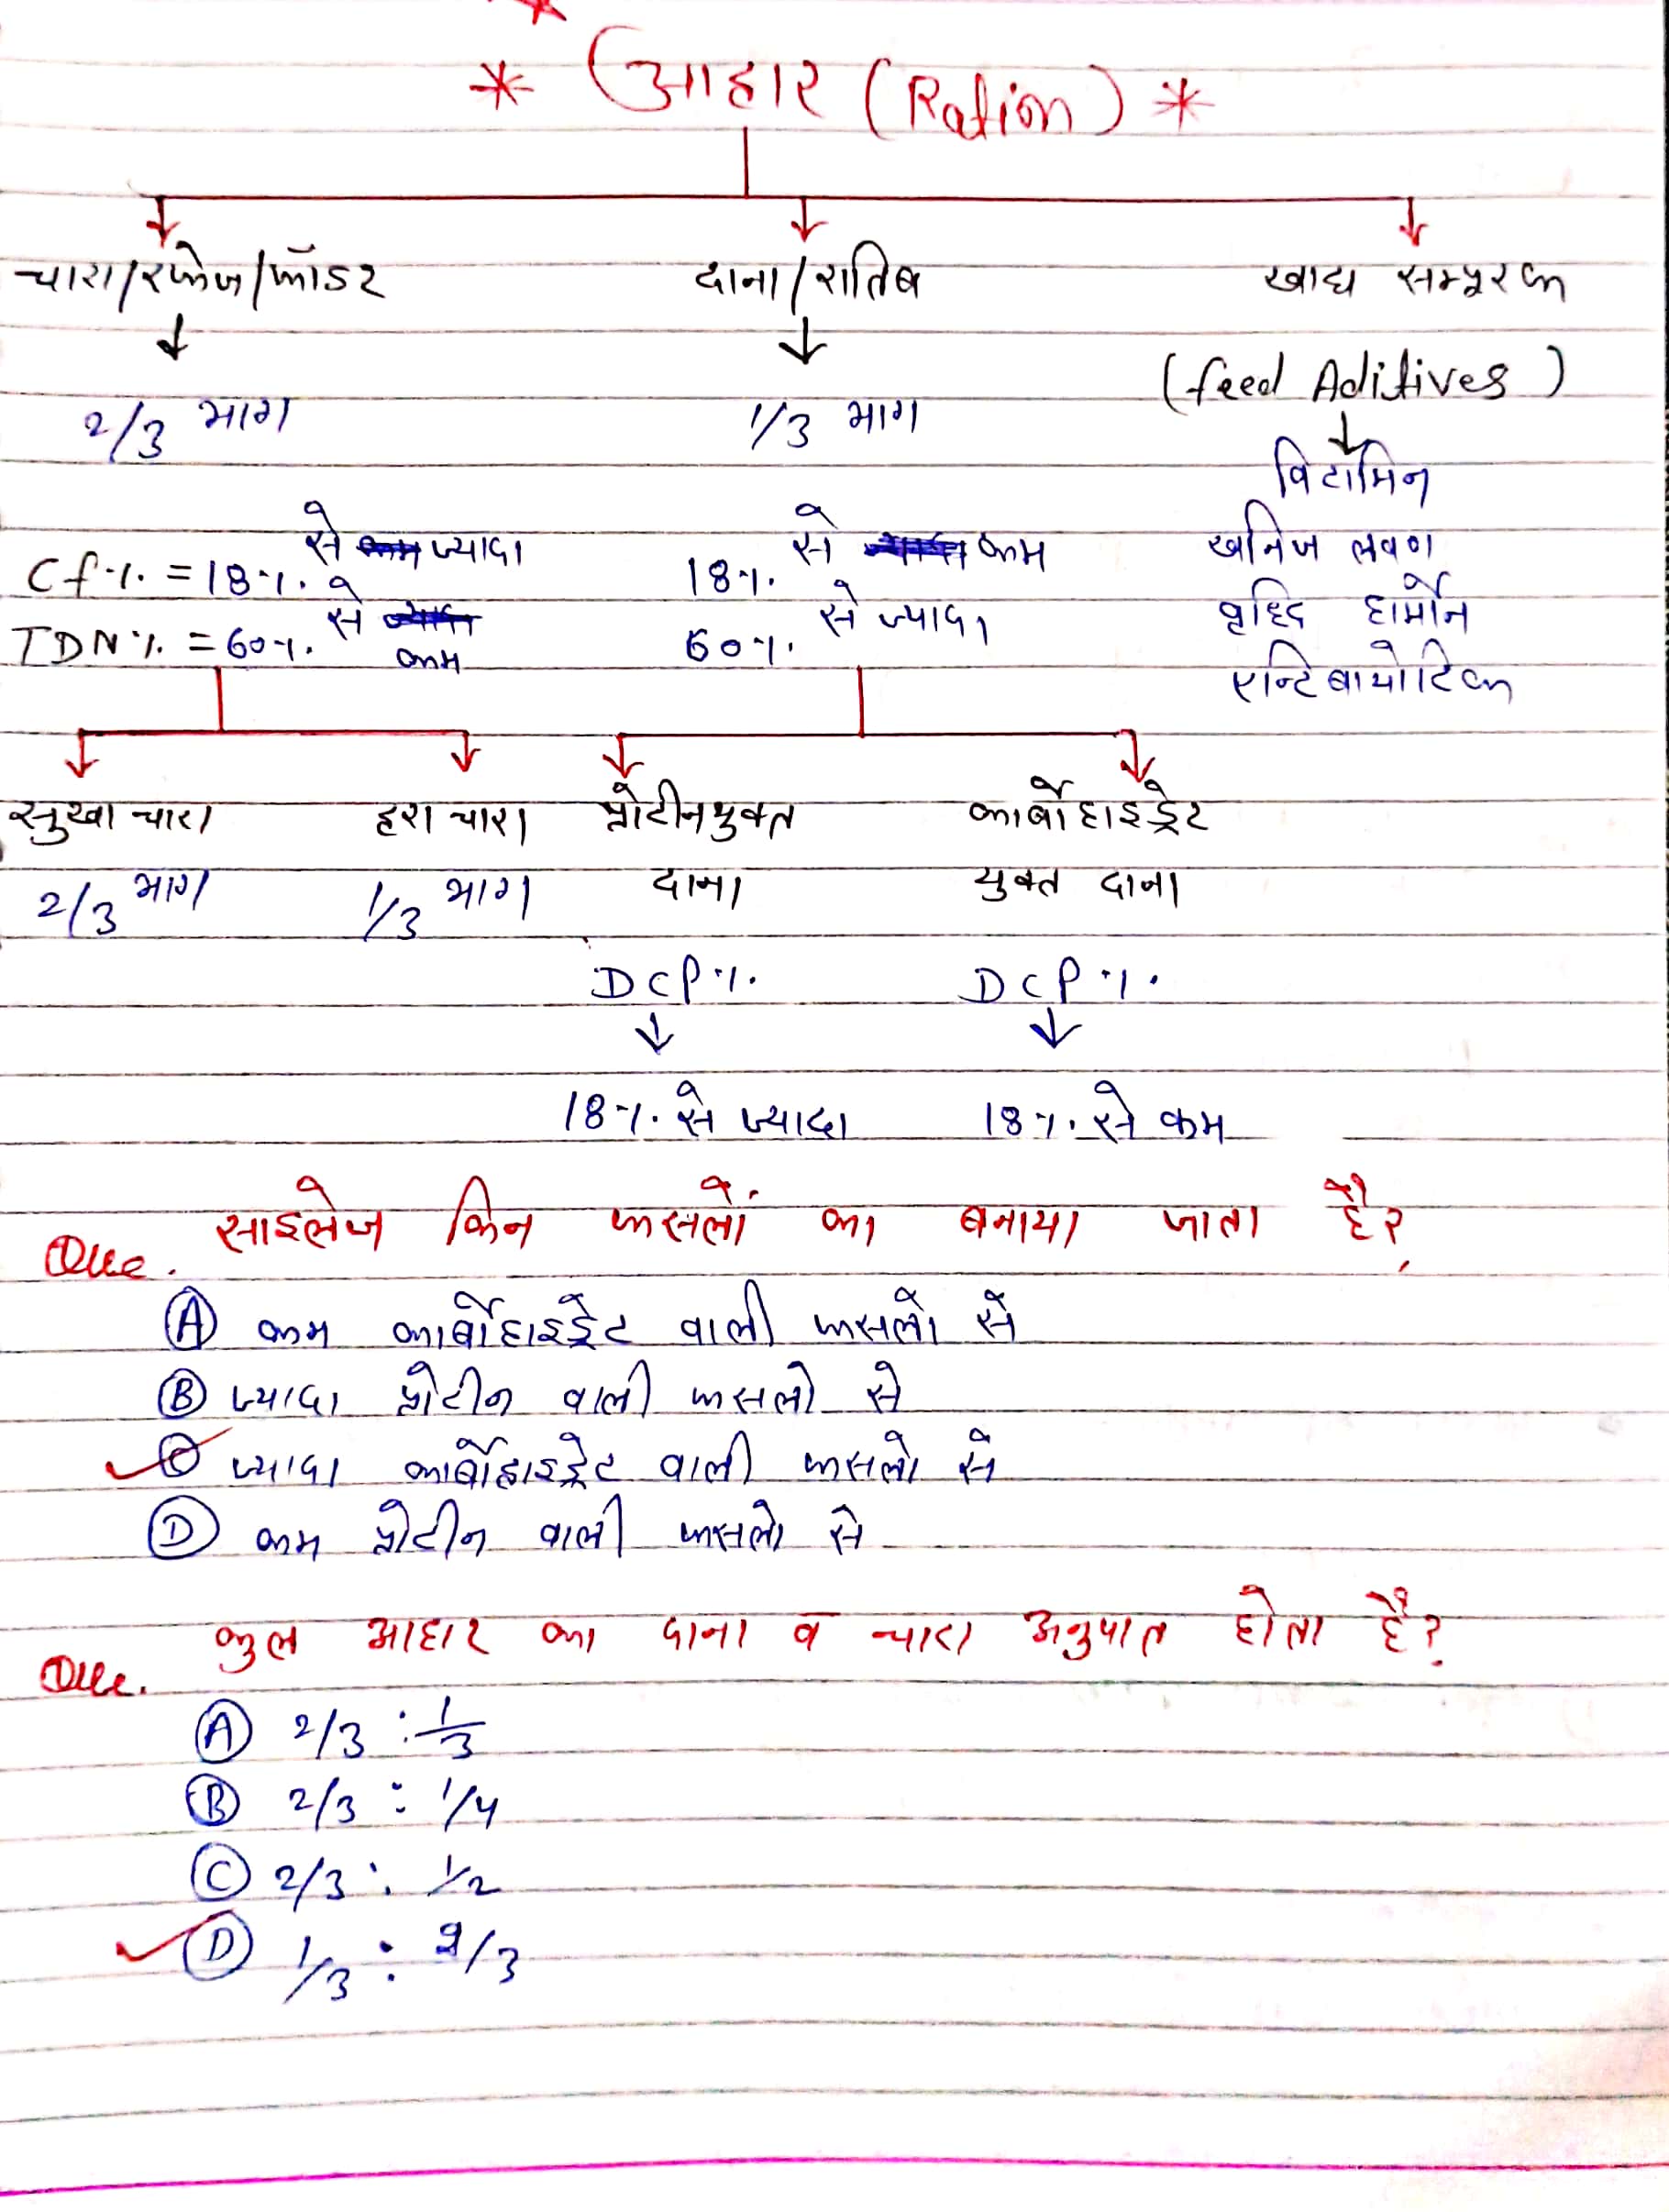 * आहार (Ration) *
चारा/रफेज/फॉडर दाना/रातिब खाद्य सम्पूरक
(feed Aditives)
2/3 भाग 1/3 भाग
विटामिन
से ज्यादा से कम खनिज लवण
Cf% = 18% 18%
से कम से ज्यादा वृध्दि हार्मोन
TDN% = 60% 60%
एन्टिबायोटिक
सुखा चारा हरा चारा प्रोटीनयुक्त कार्बोहाइड्रेट
2/3 भाग 1/3 भाग दाना युक्त दाना
DCP% DCP%
18% से ज्यादा 18% से कम
Que. साइलेज किन फसलों का बनाया जाता है?
(A) कम कार्बोहाइड्रेट वाली फसलो से
(B) ज्यादा प्रोटीन वाली फसलो से
(C) ज्यादा कार्बोहाइड्रेट वाली फसलो से
(D) कम प्रोटीन वाली फसलो से
Que. कुल आहार का दाना व चारा अनुपात होता है?
(A) 2/3 : 1/3
(B) 2/3 : 1/4
(C) 2/3 : 1/2
(D) 1/3 : 2/3